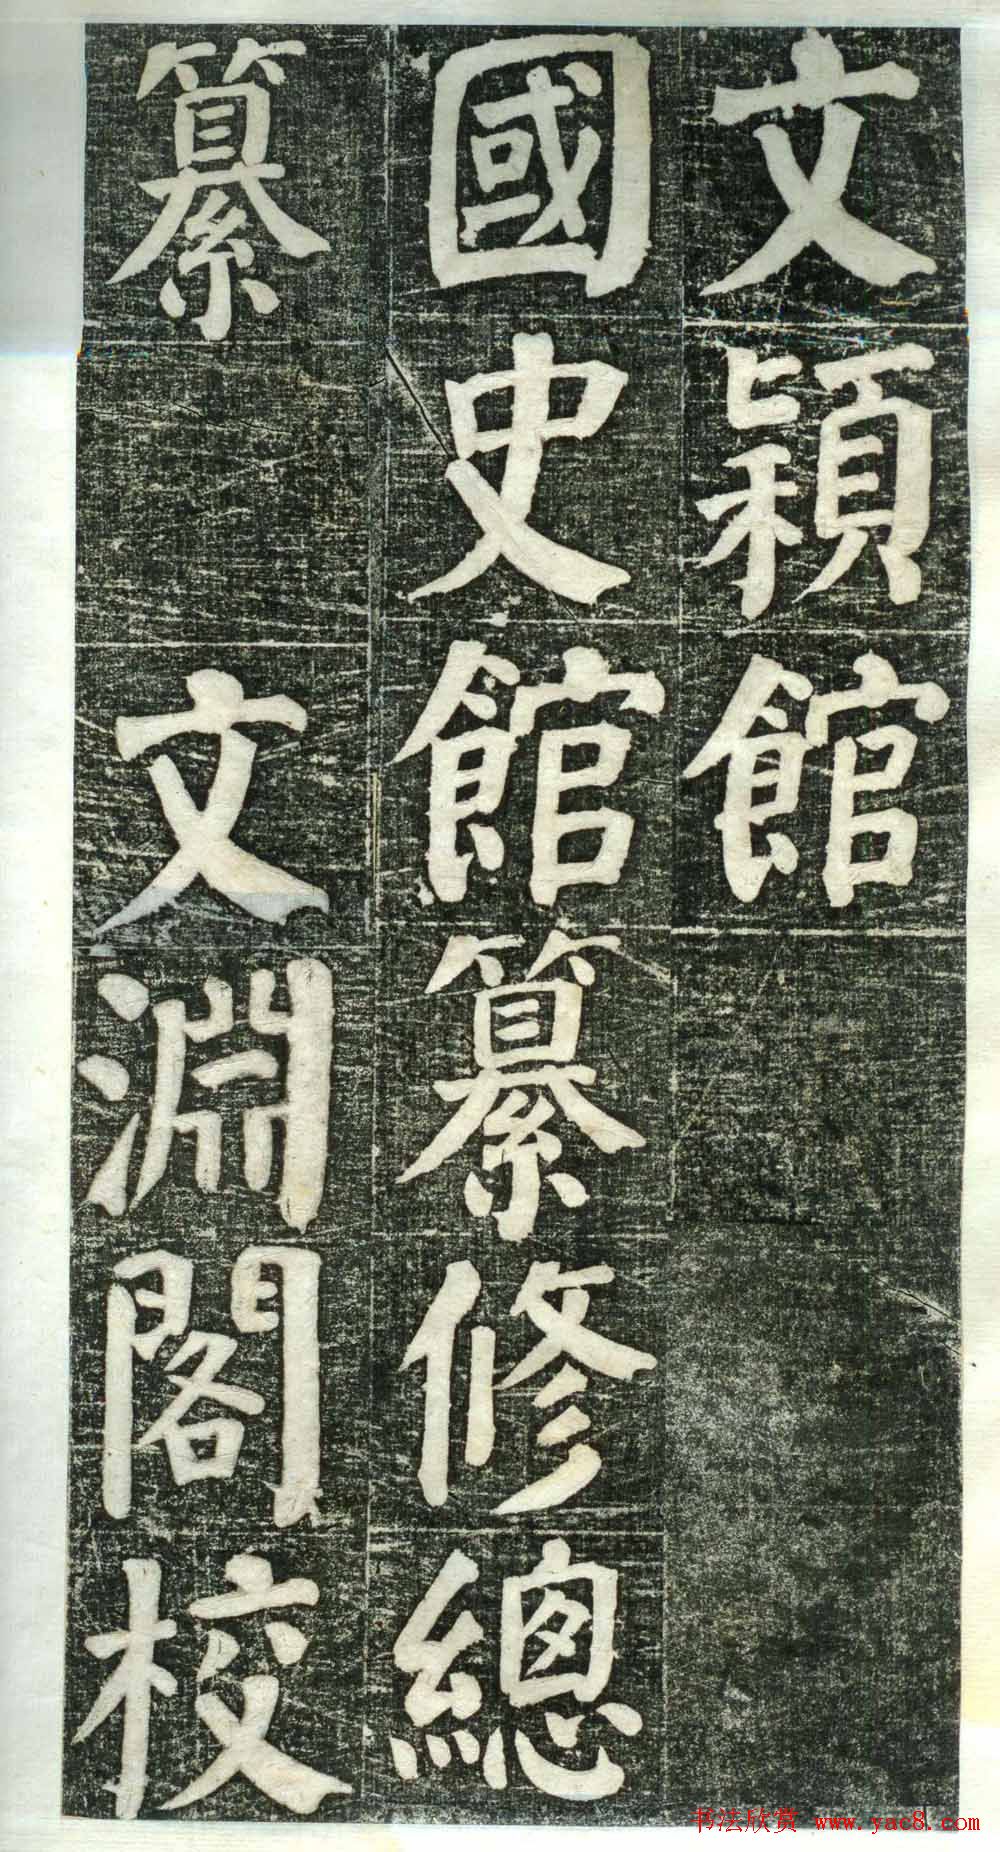 文穎館
國史館纂修總
纂 文淵閣校
书法欣赏 www.yac8.com